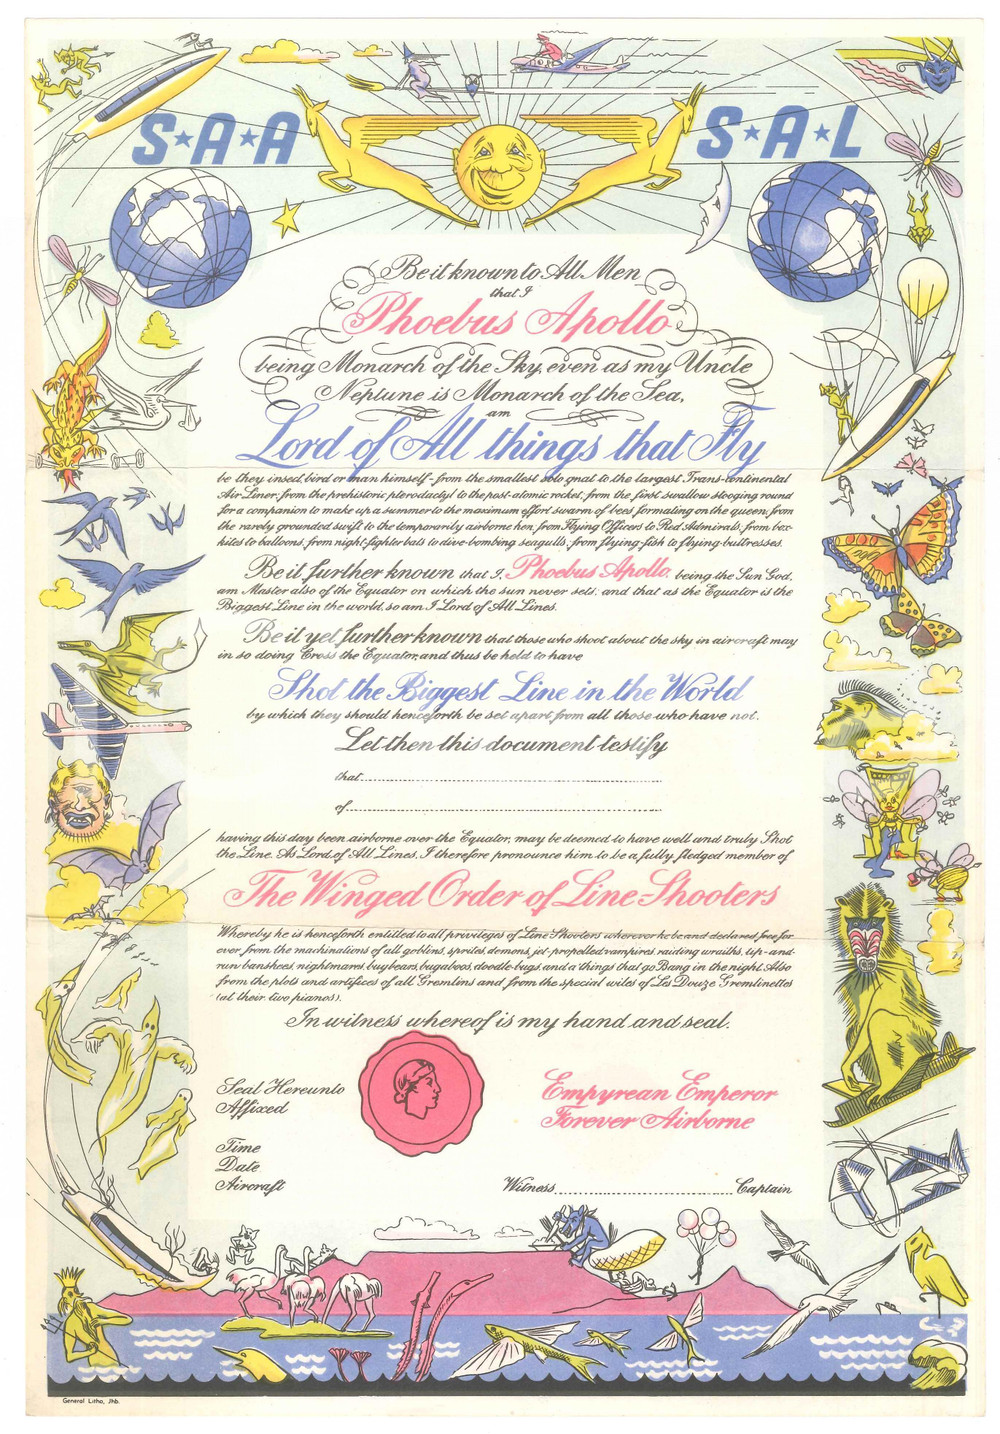 S★A★A
S★A★L
Be it known to All Men
that I
Phoebus Apollo
being Monarch of the Sky, even as my Uncle
Neptune is Monarch of the Sea,
am
Lord of All things that Fly
be they insect, bird or man himself - from the smallest solo gnat to the largest Trans-continental
Air Liner; from the prehistoric pterodactyl to the post-atomic rocket, from the first swallow stooging round
for a companion to make up a summer to the maximum effort swarm of bees formating on the queen; from
the rarely grounded swift to the temporarily airborne hen, from Flying Officers to Red Admirals, from box-
kites to balloons, from night-fighter bats to dive-bombing seagulls, from flying-fish to flying-buttresses.
Be it further known that I, Phoebus Apollo, being the Sun God,
am Master also of the Equator on which the sun never sets; and that as the Equator is the
Biggest Line in the world, so am I Lord of All Lines.
Be it yet further known that those who shoot about the sky in aircraft may
in so doing Cross the Equator, and thus be held to have
Shot the Biggest Line in the World
by which they should henceforth be set apart from all those who have not.
Let then this document testify
that
of
having this day been airborne over the Equator, may be deemed to have well and truly Shot
the Line. As Lord of All Lines, I therefore pronounce him to be a fully fledged member of
The Winged Order of Line-Shooters
Whereby he is henceforth entitled to all privileges of Line-Shooters wherever he be and declared free for
ever from the machinations of all goblins, sprites, demons, jet-propelled vampires, raiding wraiths, tip-and-
run banshees, nightmares, bugbears, bugaboos, doodle-bugs, and a things that go Bang in the night. Also
from the plots and artifices of all Gremlins and from the special wiles of Les Douze Gremlinettes
(at their two pianos).
In witness whereof is my hand and seal.
Seal Hereunto
Affixed
Empyrean Emperor
Forever Airborne
Time
Date
Aircraft
Witness Captain
General Litho, Jhb.